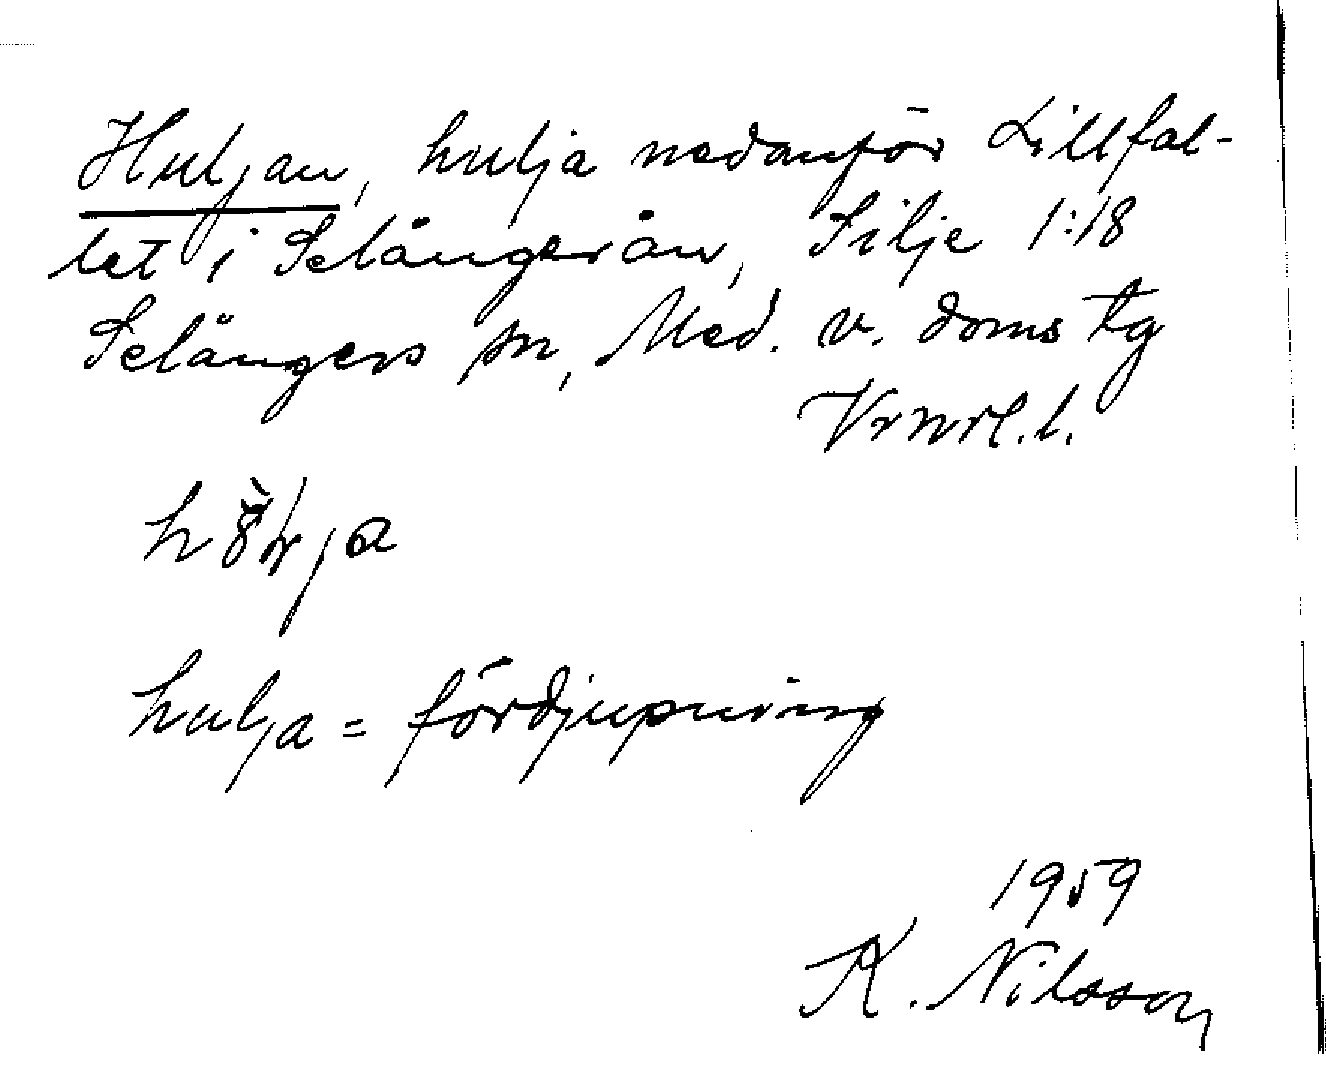 Huljan, hulja nedanför Lillfal-
let i Selångersån, Silje 1:18
Selångers sn, Med. v. doms tg
Vrnrl. l.
hulja = fördjupning
1959
K. Nilsson